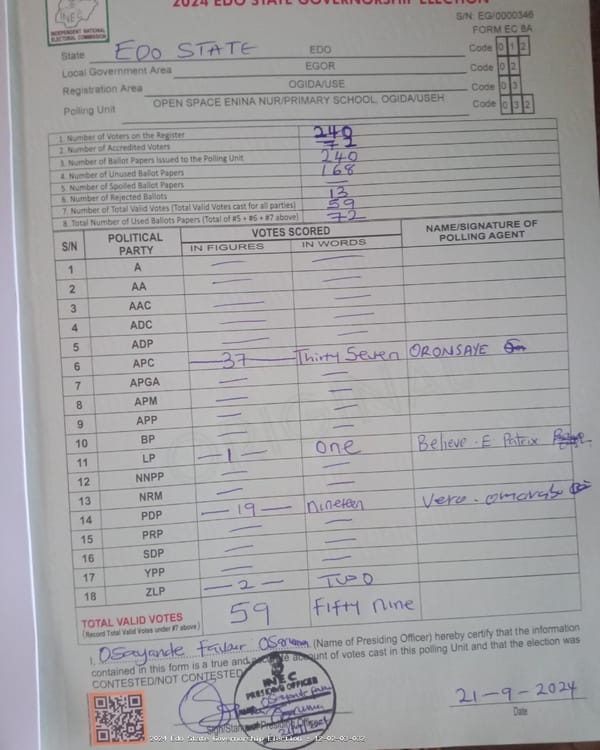 2024 EDO STATE GOVERNORSHIP ELECTION
INEC
INDEPENDENT NATIONAL ELECTORAL COMMISSION
S/N: EG/0000346
FORM EC 8A
State EDO STATE EDO Code 0 1 2
Local Government Area EGOR Code 0 2
Registration Area OGIDA/USE Code 0 3
Polling Unit OPEN SPACE ENINA NUR/PRIMARY SCHOOL, OGIDA/USEH Code 0 3 2
1. Number of Voters on the Register 240
2. Number of Accredited Voters 72
3. Number of Ballot Papers Issued to the Polling Unit 240
4. Number of Unused Ballot Papers 168
5. Number of Spoiled Ballot Papers —
6. Number of Rejected Ballots 13
7. Number of Total Valid Votes (Total Valid Votes cast for all parties) 59
8. Total Number of Used Ballots Papers (Total of #5 + #6 + #7 above) 72
S/N POLITICAL PARTY VOTES SCORED NAME/SIGNATURE OF POLLING AGENT
IN FIGURES IN WORDS
1 A — —
2 AA — —
3 AAC — —
4 ADC — —
5 ADP — —
6 APC —37— Thirty Seven ORONSAYE
7 APGA — —
8 APM — —
9 APP — —
10 BP — —
11 LP —1— One Believe - E Patrix
12 NNPP — —
13 NRM — —
14 PDP —19— Nineteen Vera -
15 PRP — —
16 SDP — —
17 YPP — —
18 ZLP —2— TWO
TOTAL VALID VOTES 59 Fifty Nine
(Record Total Valid Votes under #7 above)
I, Osayande Favour (Name of Presiding Officer) hereby certify that the information
contained in this form is a true and accurate account of votes cast in this polling Unit and that the election was
CONTESTED/NOT CONTESTED
INEC
PRESIDING OFFICER
Sign/Stamp of Presiding Officer
21-9-2024
Date
2024 Edo State Governorship Election - 12-02-03-032